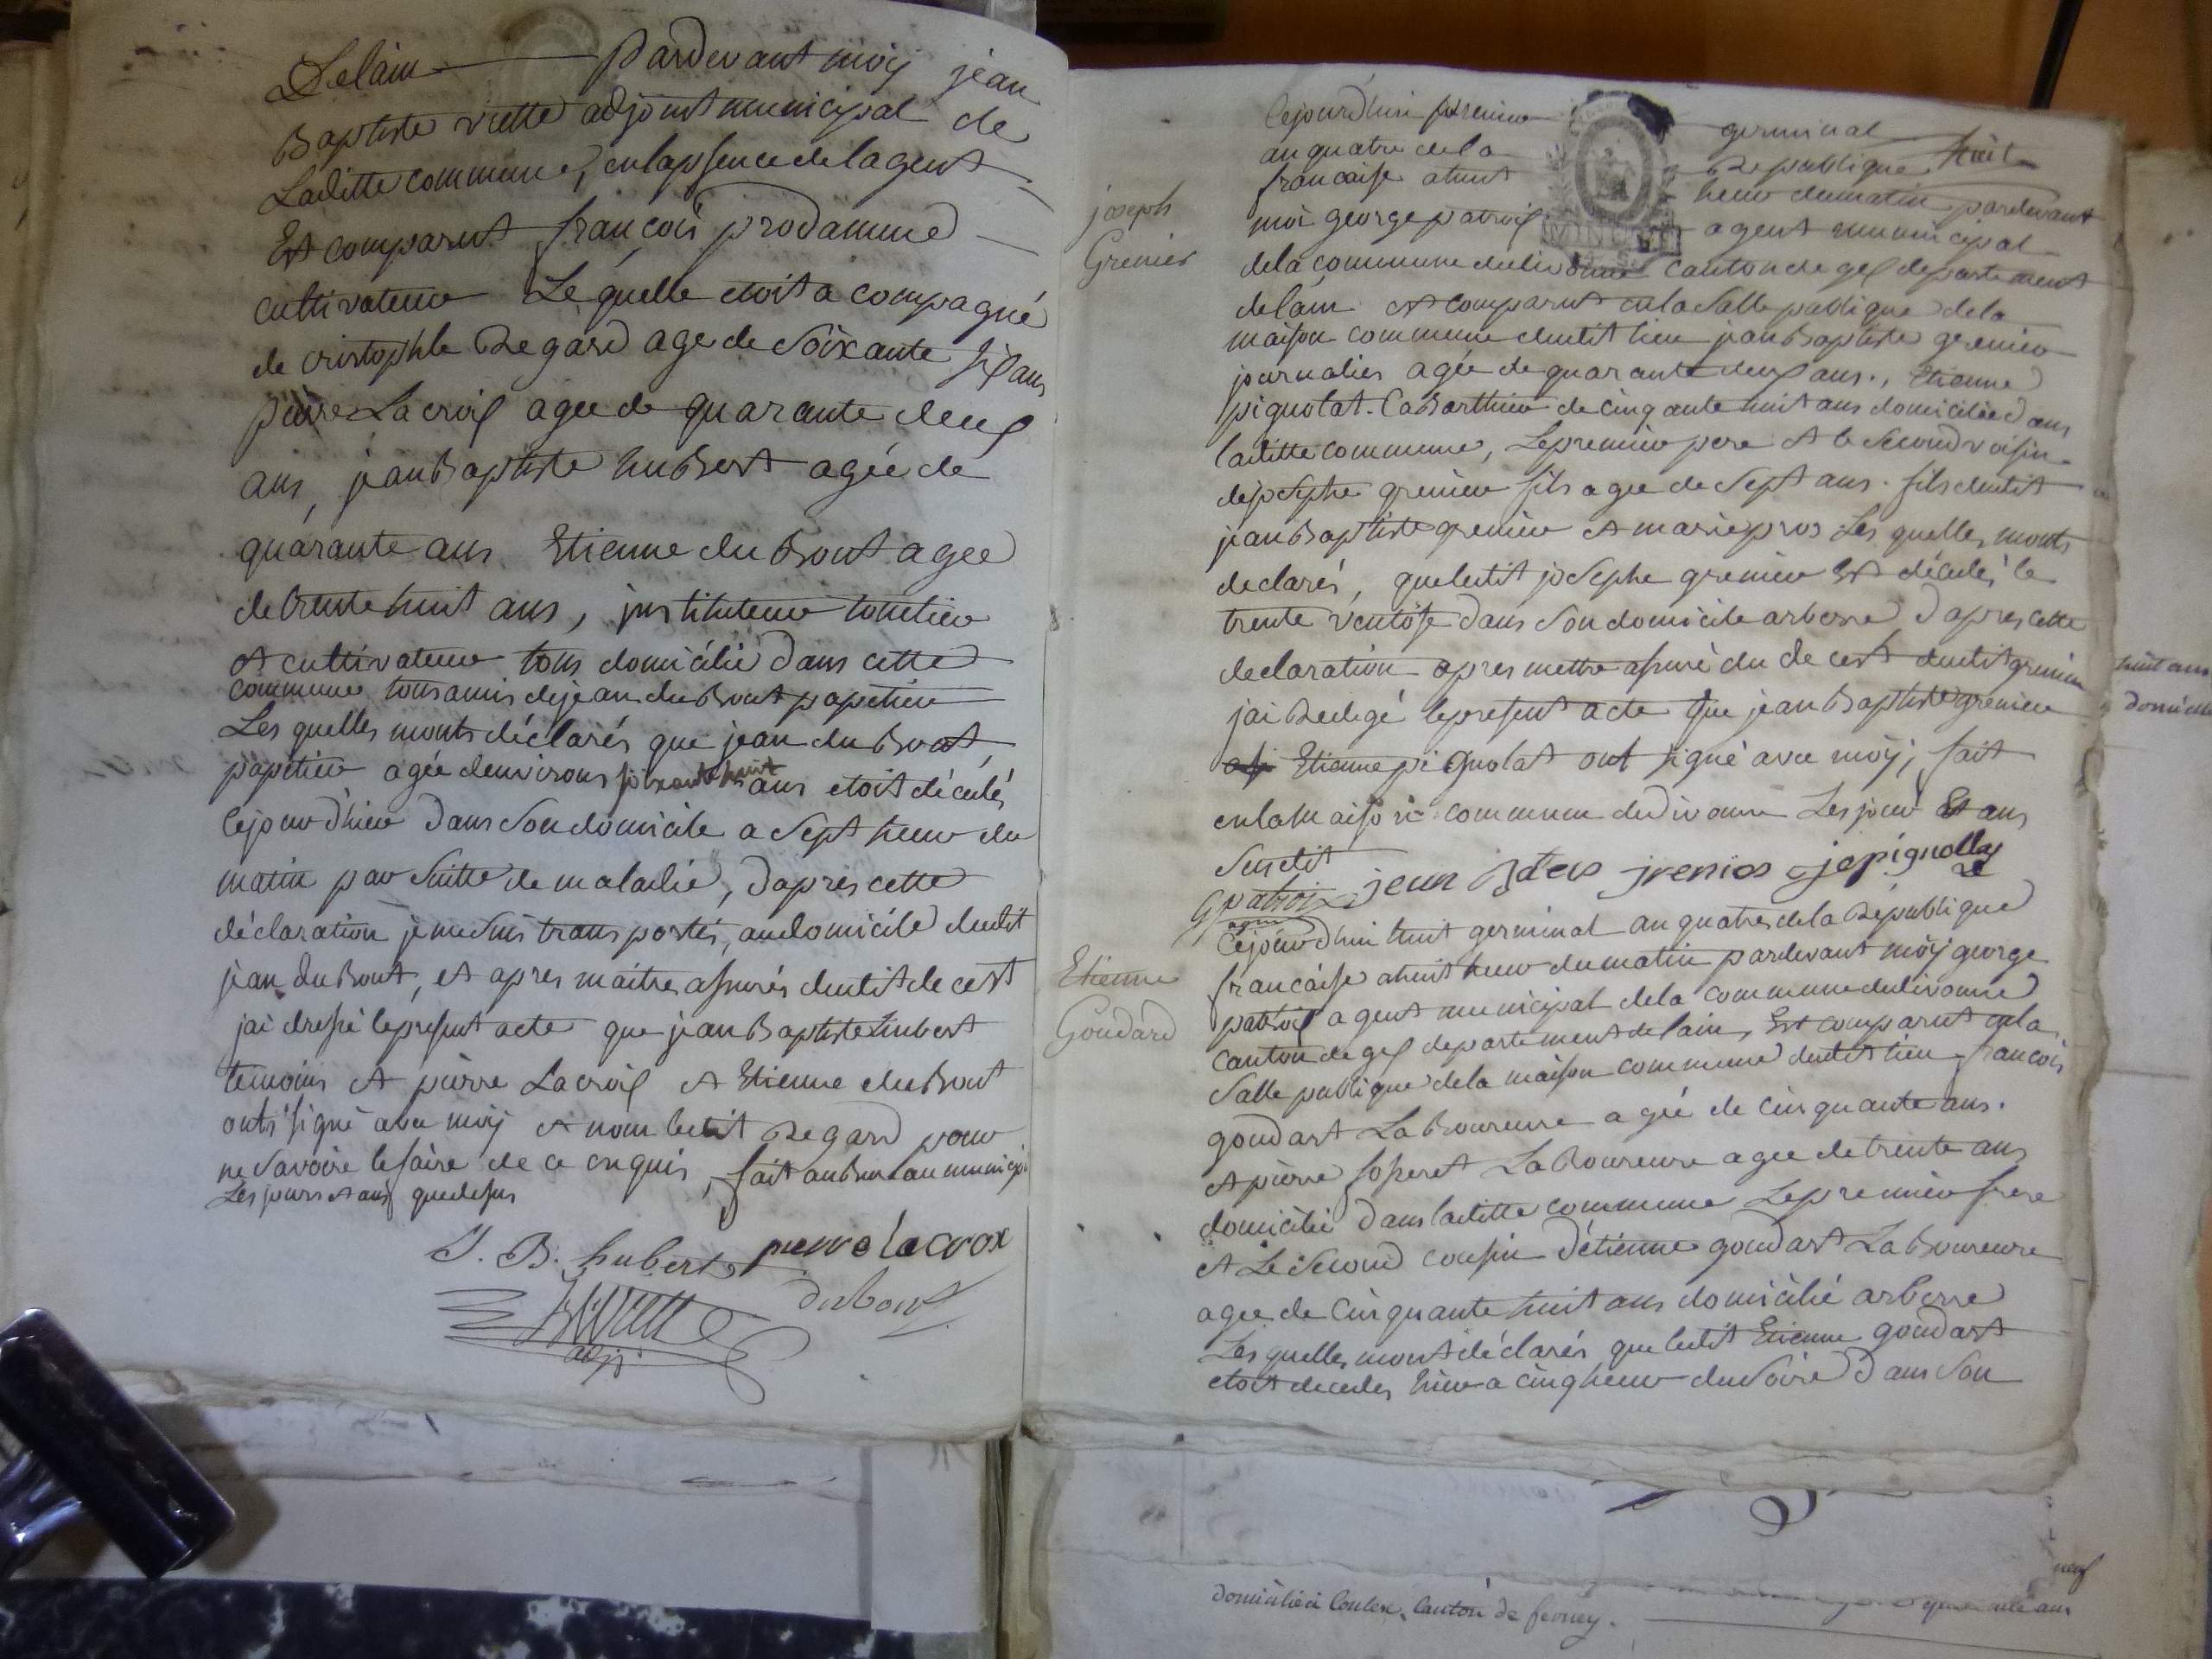 Delain Pardevant moij jean
Baptiste viette adjoint municipal de
Laditte commune, enlapsence delagent
Et comparut françois prodamme
cultivateur Lequelle etoit a compagné
de cristophle Regard age de Soixante six ans
pierre Lacroix agee de quarante deux
ans, jean Baptiste huBert agée de
quarante ans Etienne duBout agee
detrente huit ans, jnstituteur tonelier
et cultivateur tous domicilié dans cette
commune tous amis dejean duBout papetier
Les quelles monts déclarés que jean duBout,
papetier agée denvirons soixante huit ans etoit décédés
cejourdhier dans Son domicile a Sept heur du
matin par Suitte de maladié, dapres cette
déclaration jemesuis transportés, audomicile dudit
jean duBout, et apres maitre assurés dudit decest
jai dressé lepresent acte que jean Baptiste hubert
temoins et pierre Lacroix et Etienne duBout
onts signé avec moij et nom ledit Regard pour
ne Savoire lefaire de ce enquis, fait auBureau municipal
Les jours et ans quedesus
J. B. hubert pierre lacrox
dubout
adjt
joseph
Grenier
Cejourdhui premier germinal
an quatre dela Republique
francaise ahuit heur dumatin pardevant
moi george patroix agent municipal
dela commune dedivonne canton de gex departement
delain et comparut enla Salle publique dela
maison commune dudit lieu jean Baptiste grenier
journalier agée de quarante deux ans, Etienne
pignolat. CaBarthier de cinquante huit ans domicilié dans
laditte commune, Le premier pere et le Second voisin
dejosephe grenier fils agee de Sept ans. fils dudit
jean Baptiste grenier et marie pros Les quelles monts
declarés, queledit josephe grenier Est décédés le
trente ventôse dans Son domicile arberre dapres cette
declaration apres mettre assuré du decest dudit grenier
jai Redigé lepresent acte que jean Baptiste grenier
Etienne pignolat ont signé avec moij, fait
enla maison commune dedivonne Les jour Et ans
Susdit
G patroix jean grenier pignollat
agent
Etienne
Goudard
Cejourdhui huit germinal an quatre dela République
francaise ahuit heur dumatin pardevant moij george
patroix agent municipal dela commune dedivonne
Canton de gex departement de lain, Est comparut enla
Salle publique dela maison commune dudit lieu françois
goudart LaBoureure agée de cinquante ans.
et pierre LaBoureure agee detrente ans
domicilié dans laditte commune Le premier frere
et Le Second cousin détienne goudart LaBoureure
agee de cinquante huit ans domicilié arberre
Les quelles mont déclarés que ledit Etienne goudart
etoit decedes hier a cinq heur duSoire dans Son
huit ans
domicilié
neuf
ans
domicilié à Contex, Canton de ferney.